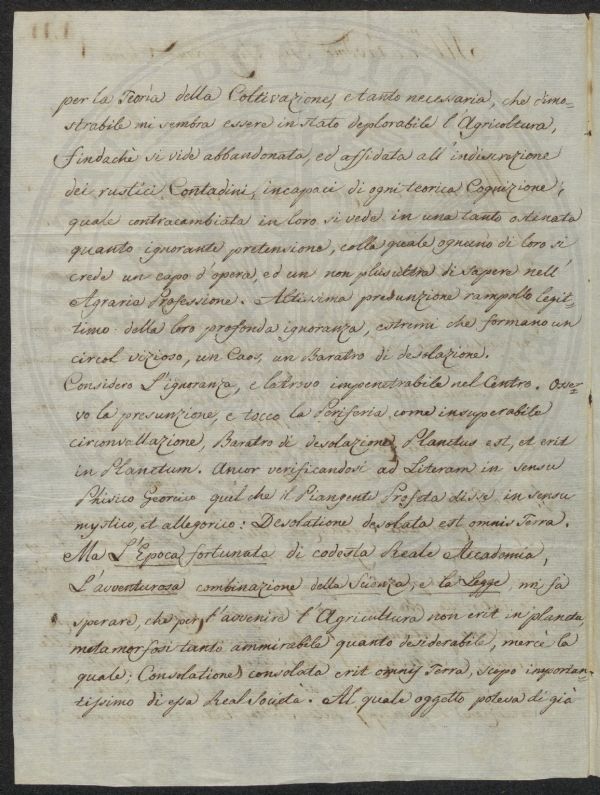 per la Teoria della Coltivazione, e tanto necessaria, che dimo=
strabile mi sembra essere in stato deplorabile l'Agricoltura,
sindachè si vide abbandonata, ed affidata all'indiscrezione
dei rustici Contadini, incapaci di ogni teorica Cognizione;
quale contracambiata in loro si vede in una tanto ostinata
quanto ignorante pretensione, colla quale ognuno di loro si
crede un capo d'opera, ed un non plus ultra di sapere nell'
Agraria Professione. Altissima presunzione rampollo legit=
timo della loro profonda ignoranza, estremi che formano un
circol vizioso, un Caos, un Baratro di desolazione.
Considero L'ignoranza, e la trovo impenetrabile nel Centro. Osser=
vo la presunzione, e tocco la Periferia come insuperabile
circonvallazione, Baratro di desolazione, Planctus est, et erit
in Planctum. Ancor verificandosi ad Literam in sensu
Phisico Georcico quel che il Piangente Profeta disse in sensu
mystico, et allegorico: Desolatione desolata est omnis Terra.
Ma L'Epoca fortunata di codesta Reale Accademia,
L'avventurosa combinazione della Scienza, e la Legge, mi fa
sperare, che per l'avvenire l'Agricultura non erit in planctu,
metamorfosi tanto ammirabile quanto desiderabile, mercè la
quale; Consolatione consolata erit omnis Terra, scopo importan=
tissimo di essa Real Società. Al quale oggetto poteva di già